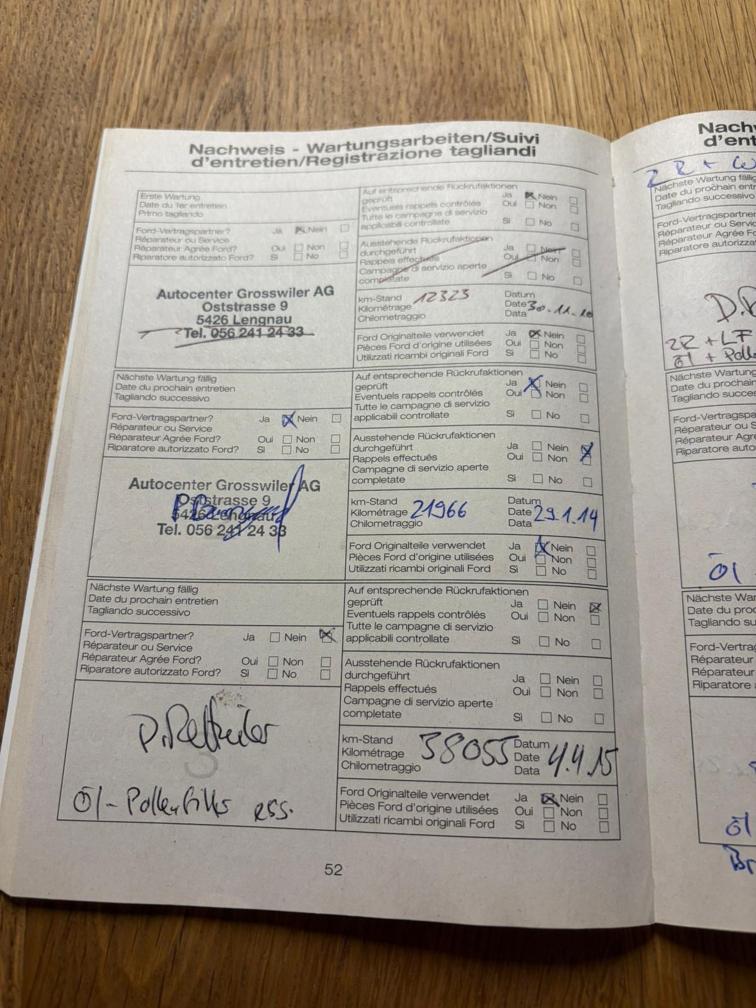 Nachweis - Wartungsarbeiten/Suivi
d'entretien/Registrazione tagliandi
Erste Wartung
Date du 1er entretien
Primo tagliando
Auf entsprechende Rückrufaktionen
geprüft
Eventuels rappels contrôlés
Tutte le campagne di servizio
applicabili controllate
Ja Nein
Oui Non
Si No
Ford-Vertragspartner?
Réparateur ou Service
Réparateur Agrée Ford?
Riparatore autorizzato Ford?
Ja Nein
Oui Non
Si No
Ausstehende Rückrufaktionen
durchgeführt
Rappels effectués
Campagne di servizio aperte
completate
Ja Nein
Oui Non
Si No
Autocenter Grosswiler AG
Oststrasse 9
5426 Lengnau
Tel. 056 241 24 33
km-Stand
Kilométrage
Chilometraggio
12323
Datum
Date
Data
30.11.10
Ford Originalteile verwendet
Pièces Ford d'origine utilisées
Utilizzati ricambi originali Ford
Ja Nein
Oui Non
Si No
Nächste Wartung fällig
Date du prochain entretien
Tagliando successivo
Auf entsprechende Rückrufaktionen
geprüft
Eventuels rappels contrôlés
Tutte le campagne di servizio
applicabili controllate
Ja Nein
Oui Non
Si No
Ford-Vertragspartner?
Réparateur ou Service
Réparateur Agrée Ford?
Riparatore autorizzato Ford?
Ja Nein
Oui Non
Si No
Ausstehende Rückrufaktionen
durchgeführt
Rappels effectués
Campagne di servizio aperte
completate
Ja Nein
Oui Non
Si No
Autocenter Grosswiler AG
Oststrasse 9
5426 Lengnau
Tel. 056 241 24 33
km-Stand
Kilométrage
Chilometraggio
21966
Datum
Date
Data
29.1.14
Ford Originalteile verwendet
Pièces Ford d'origine utilisées
Utilizzati ricambi originali Ford
Ja Nein
Oui Non
Si No
Nächste Wartung fällig
Date du prochain entretien
Tagliando successivo
Auf entsprechende Rückrufaktionen
geprüft
Eventuels rappels contrôlés
Tutte le campagne di servizio
applicabili controllate
Ja Nein
Oui Non
Si No
Ford-Vertragspartner?
Réparateur ou Service
Réparateur Agrée Ford?
Riparatore autorizzato Ford?
Ja Nein
Oui Non
Si No
Ausstehende Rückrufaktionen
durchgeführt
Rappels effectués
Campagne di servizio aperte
completate
Ja Nein
Oui Non
Si No
Öl-Pollenfilter ers.
km-Stand
Kilométrage
Chilometraggio
38055
Datum
Date
Data
4.4.15
Ford Originalteile verwendet
Pièces Ford d'origine utilisées
Utilizzati ricambi originali Ford
Ja Nein
Oui Non
Si No
52
Nachw
d'ent
Nächste Wartung fällig
Date du prochain entr
Tagliando successivo
Ford-Vertragspartner?
Réparateur ou Servic
Réparateur Agrée Fo
Riparatore autorizza
ZR + LF
Öl + Polle
Nächste Wartung
Date du procha
Tagliando succ
Ford-Vertragspa
Réparateur ou S
Réparateur Agr
Riparatore auto
Öl
Nächste War
Date du proc
Tagliando su
Ford-Vertrag
Réparateur
Réparateur
Riparatore
Öl
Br